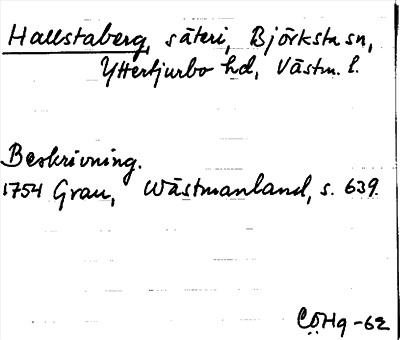 Hallstaberg, säteri, Björksta sn,
Yttertjurbo hd, Västm. l.
Beskrivning.
1754 Grau, Wästmanland, s. 639.
CÖHg -62